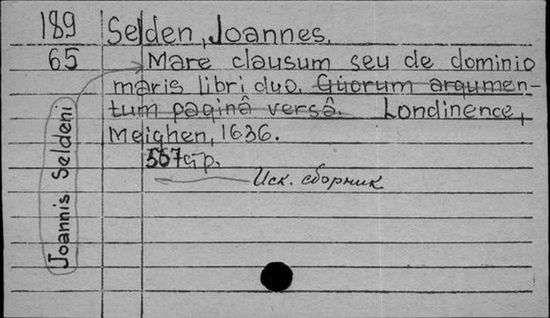 189 Selden, Joannes.
65 Mare clausum seu de dominio
maris libri duo. Guorum argumen-
tum paginâ versâ. Londinence,
Meighen, 1636.
567 стр.
Иск. сборник
Joannis Seldeni